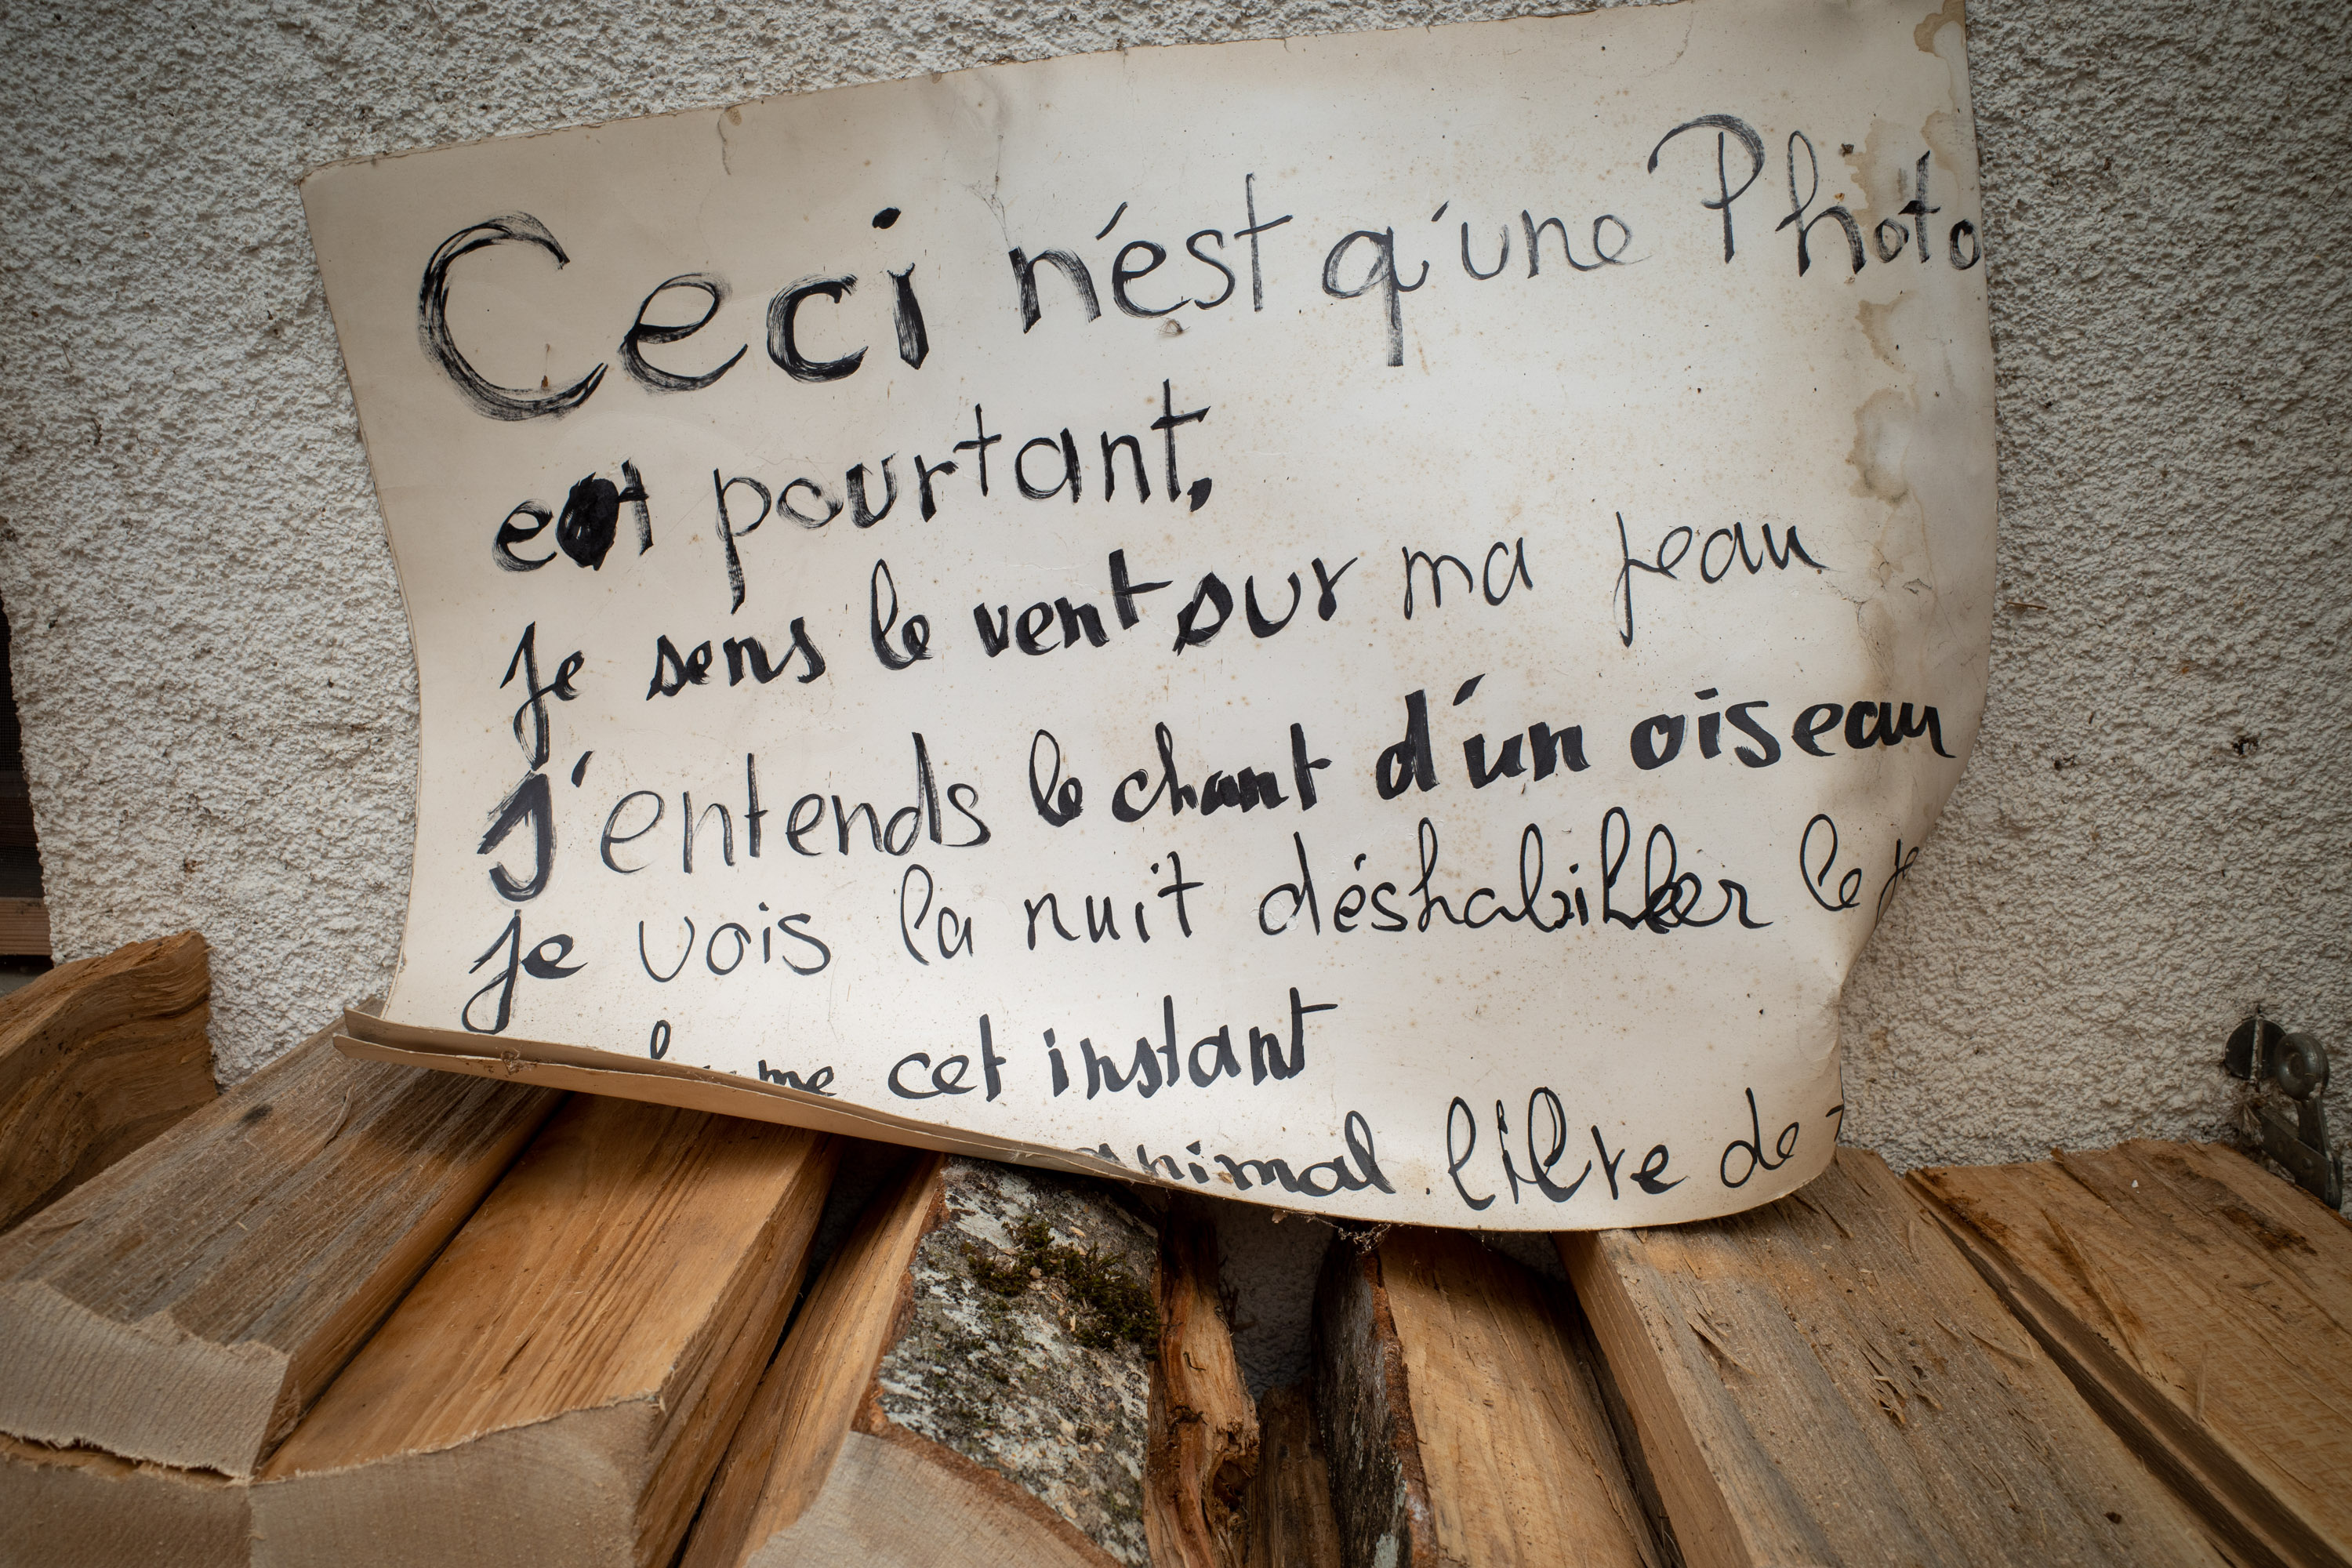 Ceci n'est q'une Photo
et pourtant,
je sens le vent sur ma peau
J'entends le chant d'un oiseau
je vois la nuit déshabiller le
cet instant
animal libre de